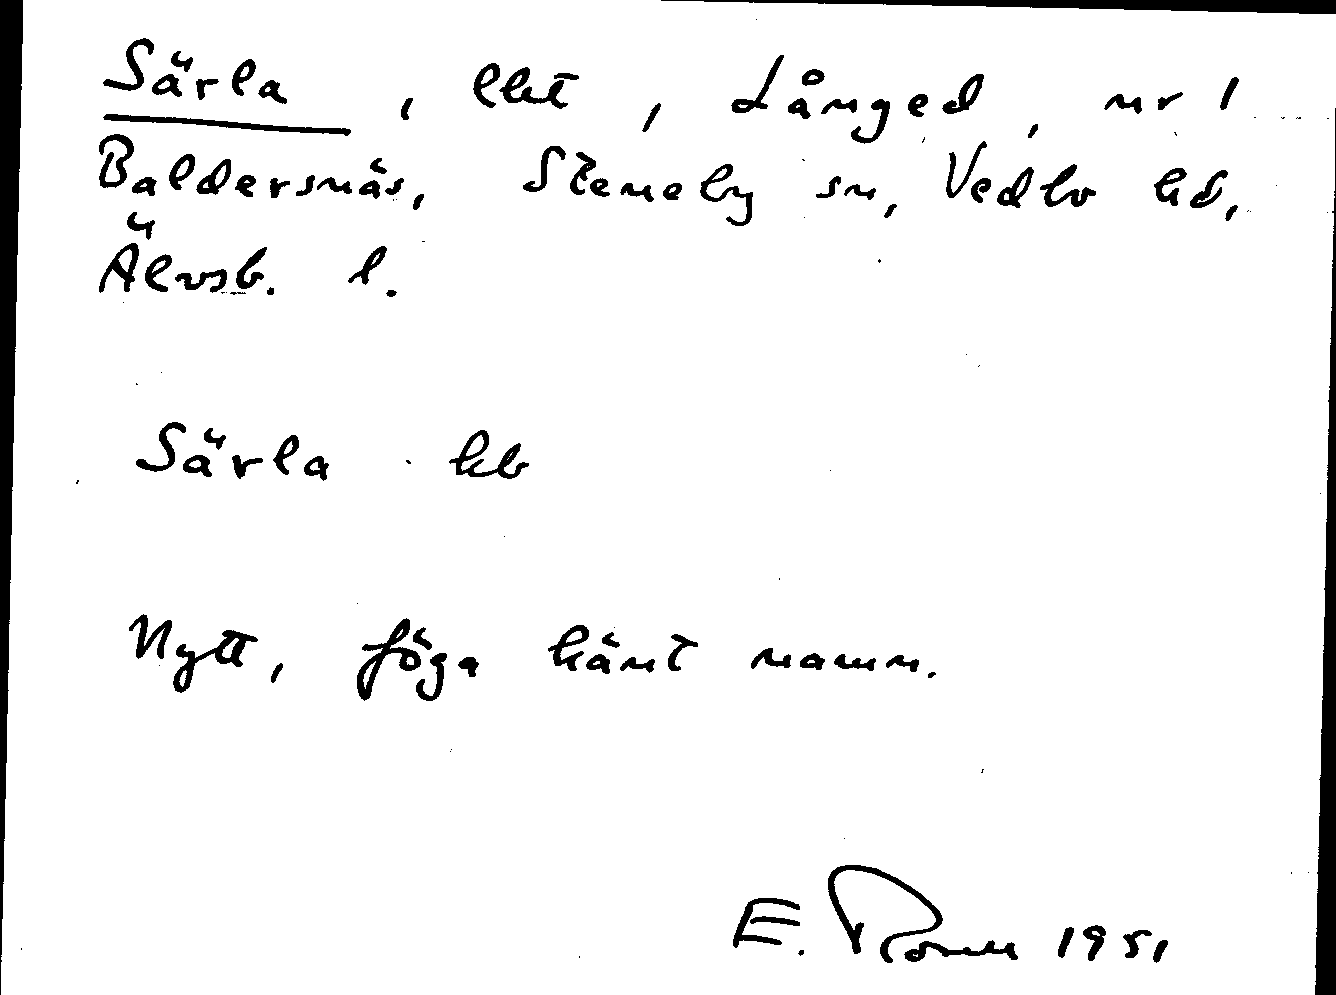 Särla, lht, Långed, nr 1
Baldersnäs, Steneby sn, Vedbo hd,
Älvsb. l.
Särla kb
Nytt, föga känt namn.
E. 1951